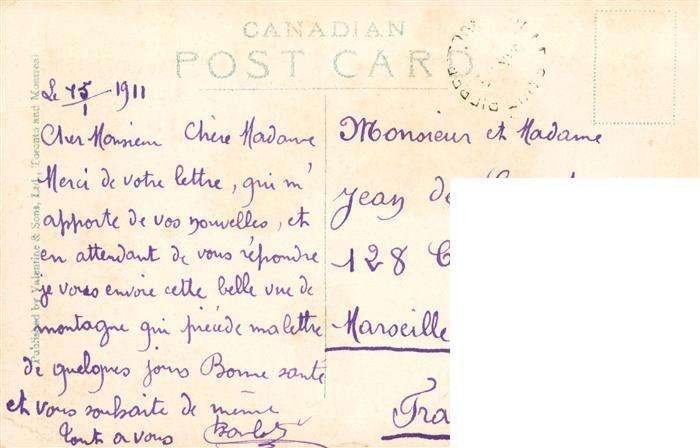 CANADIAN
POST CARD
Published by Valentine & Sons, Ltd., Toronto and Montreal
Le 15/1 1911
Cher Monsieur Chère Madame
Merci de votre lettre, qui m'
apporte de vos nouvelles, et
en attendant de vous répondre
je vous envoie cette belle vue de
montagne qui précède ma lettre
de quelques jours Bonne santé
et vous souhaite de même
Tout a vous
Monsieur et Madame
Jean de
128
Marseille
Fra